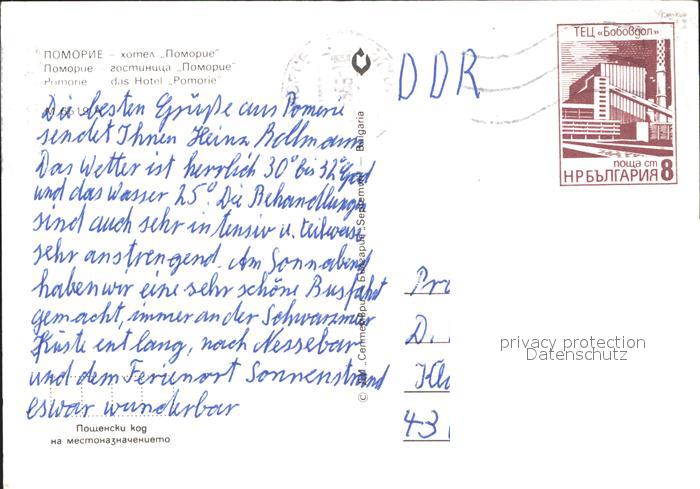 ПОМОРИЕ – хотел „Поморие"
Поморие гостиница „Поморие"
Pomorie das Hotel „Pomorie"
DDR
ТЕЦ «Бобовдол»
поща ст 8
НРБЪЛГАРИЯ
Die besten Grüße aus Pomorie
sendet Ihnen Heinz Bellmann
Das Wetter ist herrlich 30° bis 32° Grad
und das Wasser 25°. Die Behandlungen
sind auch sehr intensiv u. teilweise
sehr anstrengend. Am Sonnabend
haben wir eine sehr schöne Busfahrt
gemacht, immer an der Schwarzmeer
Küste entlang, nach Nessebar
und dem Ferienort Sonnenstrand
es war wunderbar
Bulgaria
Пощенски код
на местоназначението
Pr
D.
Kl
43
privacy protection
Datenschutz